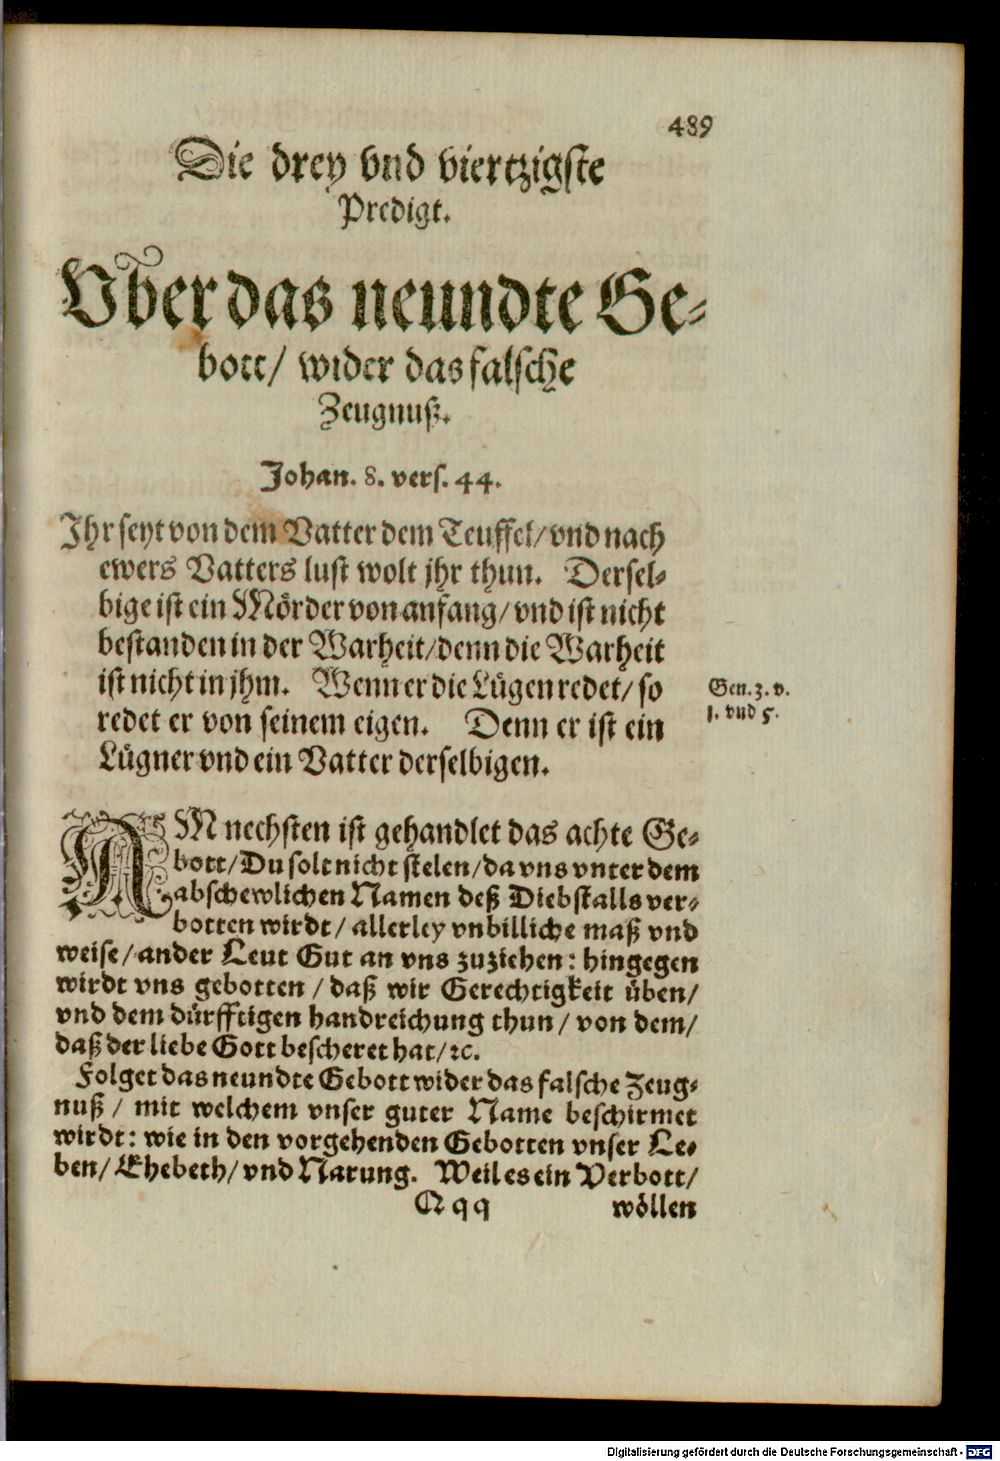 489
Die drey vnd viertzigste
Predigt.
Vber das neundte Ge-
bott/ wider das falsche
Zeugnuß.
Johan. 8. vers. 44.
Jhr seyt von dem Vatter dem Teuffel/ vnd nach
ewers Vatters lust wolt jhr thun. Dersel-
bige ist ein Mörder von anfang/ vnd ist nicht
bestanden in der Warheit/ denn die Warheit
ist nicht in jhm. Wenn er die Lügen redet/ so
redet er von seinem eigen. Denn er ist ein
Lügner vnd ein Vatter derselbigen.
Gen. 3. v.
1. vnd 5.
AM nechsten ist gehandlet das achte Ge-
bott/ Du solt nicht stelen/ da vns vnter dem
abschewlichen Namen deß Diebstalls ver-
botten wirdt/ allerley vnbilliche maß vnd
weise/ ander Leut Gut an vns zuziehen: hingegen
wirdt vns gebotten/ daß wir Gerechtigkeit üben/
vnd dem dürfftigen handreichung thun/ von dem/
daß der liebe Gott bescheret hat/ ꝛc.
Folget das neundte Gebott wider das falsche Zeug-
nuß/ mit welchem vnser guter Name beschirmet
wirdt: wie in den vorgehenden Gebotten vnser Le-
ben/ Ehebeth/ vnd Narung. Weil es ein Verbott/
Qqq wöllen
Digitalisierung gefördert durch die Deutsche Forschungsgemeinschaft - DFG